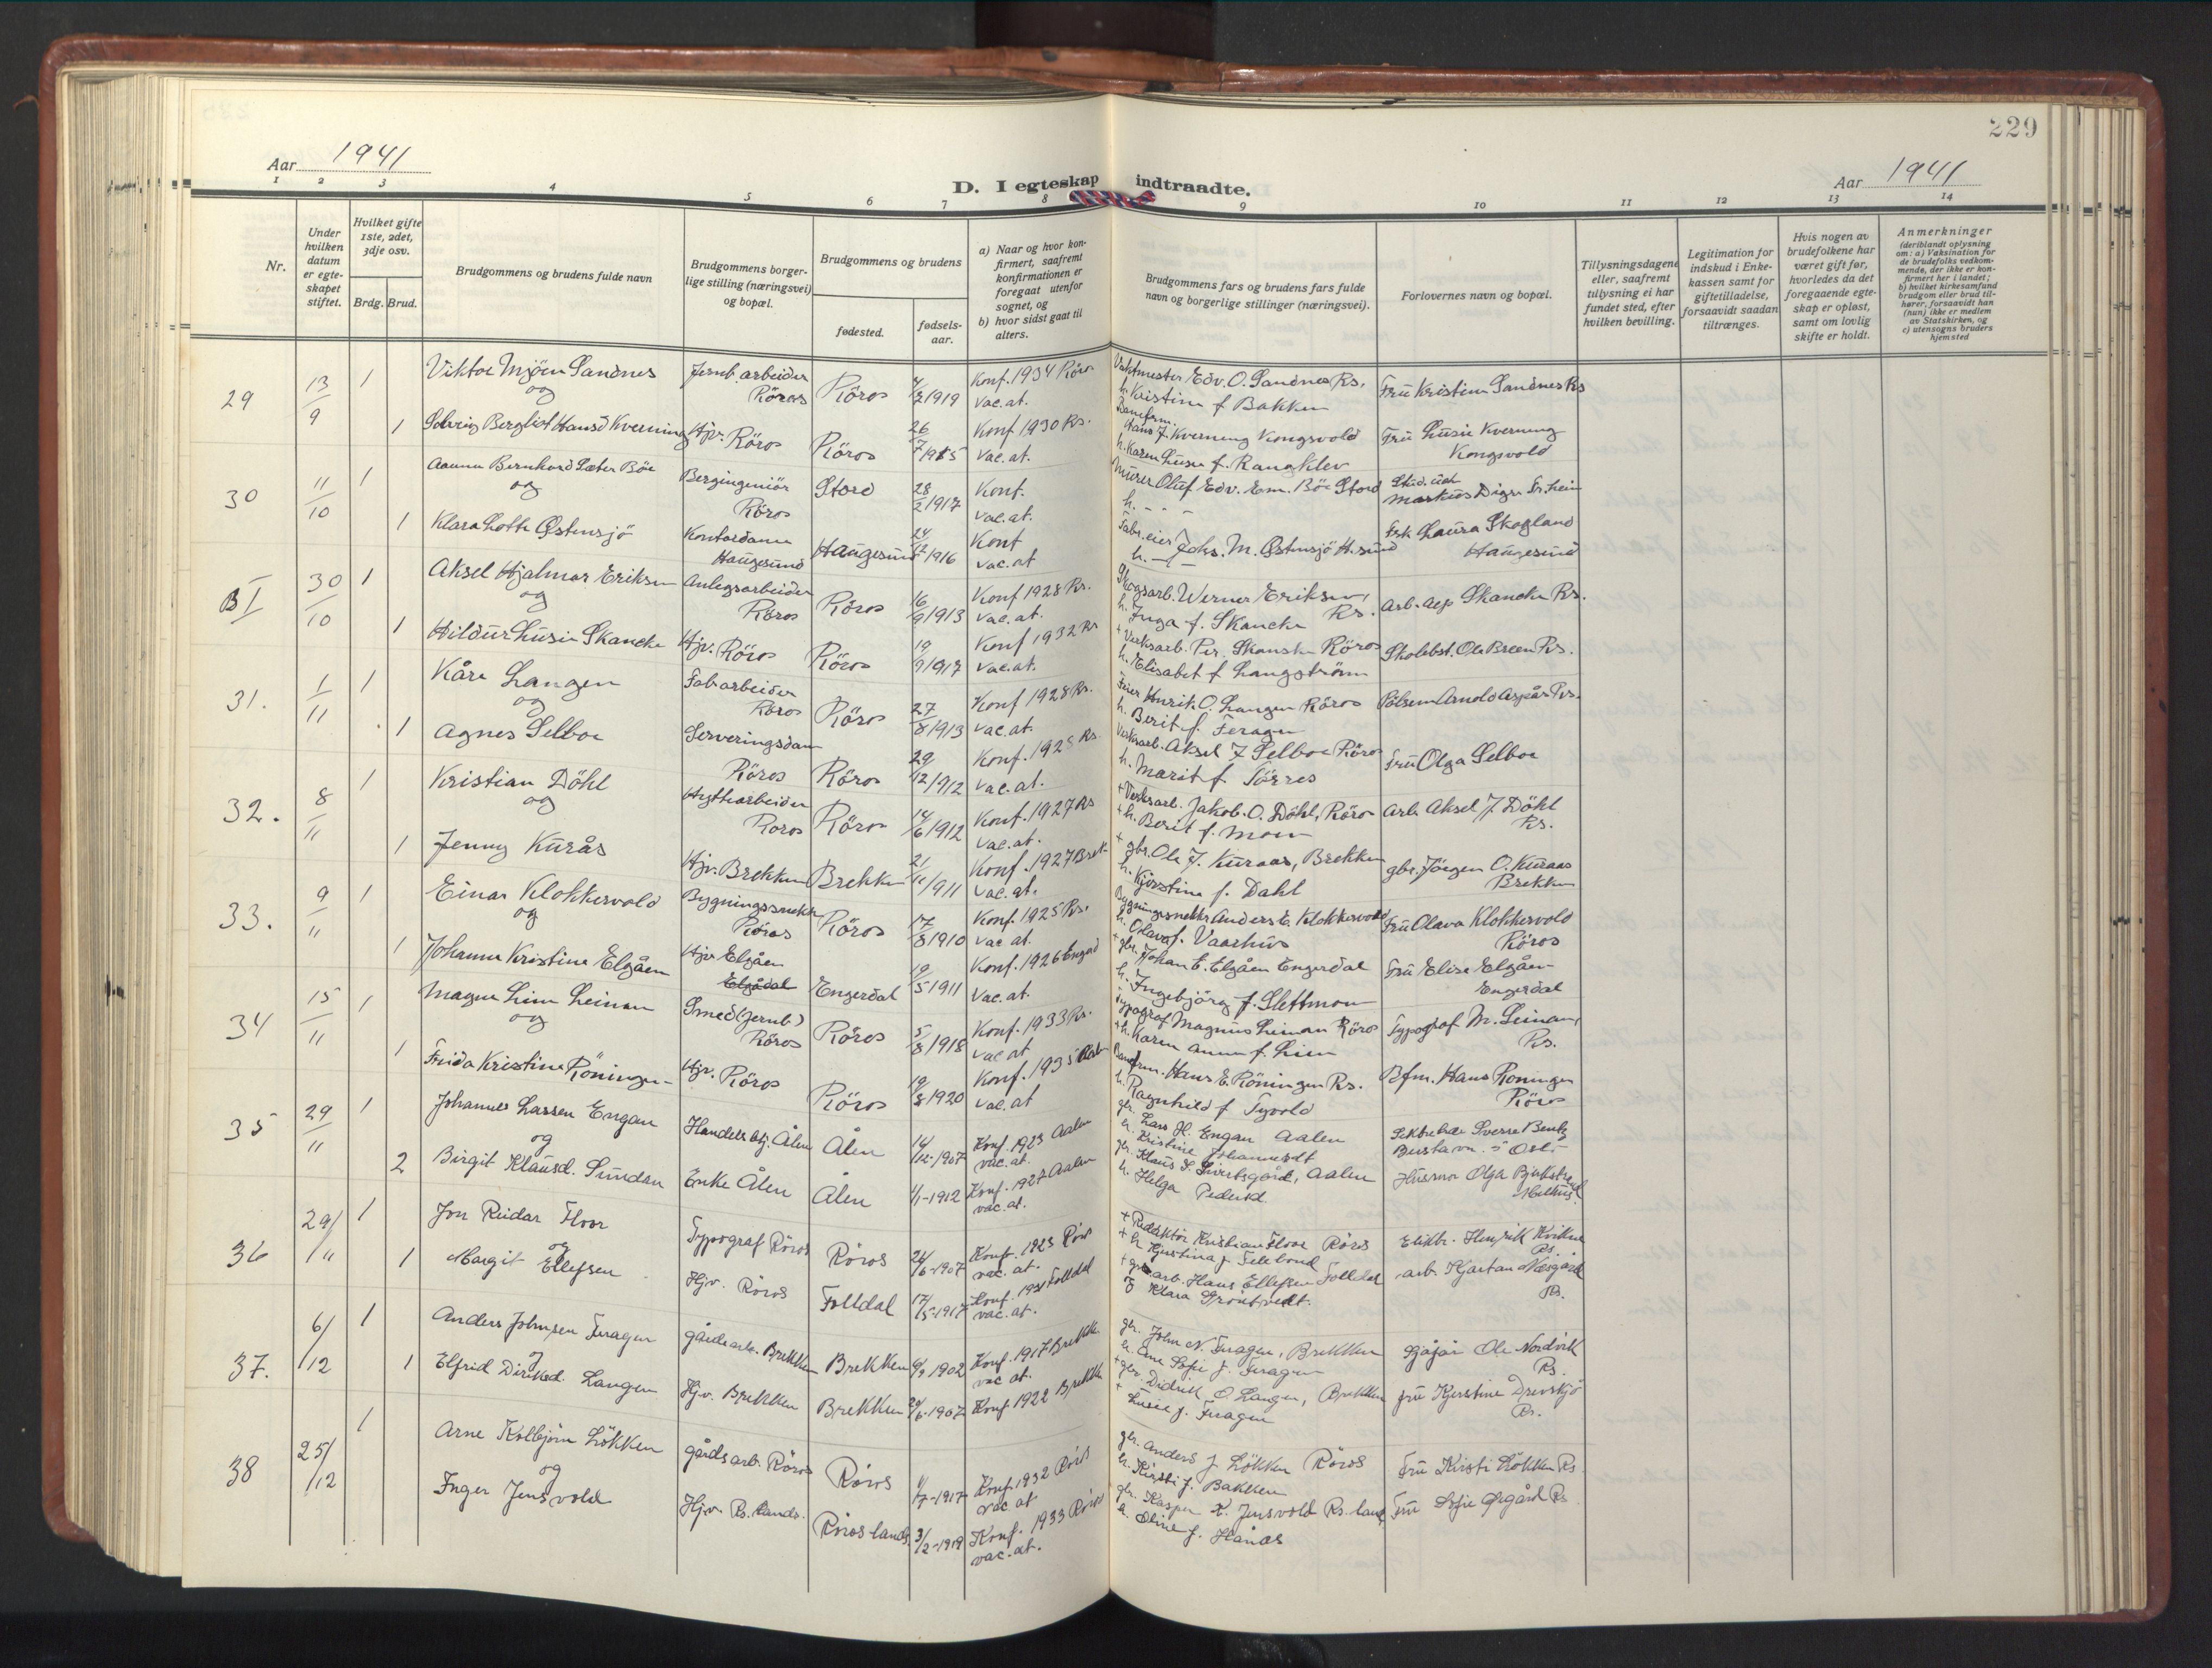 229
Aar 1941
D. I egteskap indtraadte.
Aar 1941
1 2 3 4 5 6 7 8 9 10 11 12 13 14
Nr.
Under hvilken datum er egte-skapet stiftet.
Hvilket gifte 1ste, 2det, 3dje osv.
Brdg. Brud.
Brudgommens og brudens fulde navn
Brudgommens borger-lige stilling (næringsvei) og bopæl.
Brudgommens og brudens
fødested.
fødsels-aar.
a) Naar og hvor kon-firmert, saafremt konfirmationen er foregaat utenfor sognet, og
b) hvor sidst gaat til alters.
Brudgommens fars og brudens fars fulde navn og borgerlige stillinger (næringsvei).
Forlovernes navn og bopæl.
Tillysningsdagene eller, saafremt tillysning ei har fundet sted, efter hvilken bevilling.
Legitimation for indskud i Enke-kassen samt for giftetilladelse, forsaavidt saadan tiltrænges.
Hvis nogen av brudefolkene har været gift før, hvorledes da det foregaaende egte-skap er opløst, samt om lovlig skifte er holdt.
Anmerkninger
(deriblandt oplysning om: a) Vaksination for de brudefolks vedkom-mende, der ikke er kon-firmert her i landet; b) hvilket kirkesamfund brudgom eller brud til-hører, forsaavidt han (hun) ikke er medlem av Statskirken, og c) utensogns bruders hjemsted
29 13/9 1 Viktor Mjöen Sandnes Jernb. arbeider Röros Röros 4/2 1919 Konf. 1934 Röros vac. at. Vaktmester Edv. O. Sandnes Rs. Fru Kristine Sandnes Rs
og h. Kristine f. Bakken
1 Solveig Bergliot Hansd Kverning Hjv. Röros Röros 26/7 1915 Konf 1930 Rs. vac. at. Baneform. Hans J. Kverneng Kongsvold Fru Lusie Kverneng Kongsvold
h. Karen Lusie f. Rangklev
30 11/10 1 Bernhard Sæter Böe Bergingeniör Röros Stord 28/2 1917 Konf. vac. at. Murer Oluf Edv. Em. Böe Stord Stud. Markus Digre
og h. - -
1 Klara Lotte Østensjö Kontordame Haugesund Haugesund 24/12 1916 Konf vac. at Fabr. eier Johs. M. Østensjö H.sund Frk Laura Skogland Haugesund
h. - -
B I 30/10 1 Aksel Hjalmar Eriksen Anlegsarbeider Röros Röros 16/9 1913 Konf 1928 Rs. vac. at. Skogsarb. Werner Eriksen, Rs. Arb. Skancke Rs.
og h. Inga f. Skancke
1 Hildur Lusie Skancke Hjv. Röros Röros 19/9 1917 Konf 1932 Rs vac. at. + Verksarb. Per Skancke Röros Skolebst. Ole Breen Rs.
h. Elisabet f. Langström
31. 1/11 1 Kåre Langen Fabarbeider Röros Röros 27/8 1913 Konf 1928 Rs. vac. at. Feier Henrik O. Langen Röros Pölsem Arnold Aspås Rs.
og h. Berit f. Feragen
1 Agnes Selboe Serveringsdam Röros Röros 29/12 1912 Konf. 1928 Rs. vac. at. Verksarb. Aksel J Selboe Röros Fru Olga Selboe
h. Marit f. Törres
32. 8/11 1 Kristian Döhl Hyttearbeider Roros Röros 14/6 1912 Konf. 1927 Rs vac. at. + Verksarb. Jakob O. Döhl, Röros Arb. Aksel J. Döhl Rs.
og + h. Berit f. Moen
1 Jenny Kurås Hjv. Brekken Brekken 21/11 1911 Konf. 1927 Brek. vac. at. + gbr. Ole J. Kuraas, Brekken gbr. Jörgen O. Kuraas Brekken
h. Kjerstine f. Dahl
33. 9/11 1 Einar Klokkervold Bygningssnekk Röros Röros 17/8 1910 Konf. 1925 Rs. vac at. Bygningssnekker Anders E. Klokkervold Fru Olava Klokkervold Röros
og h. Olava f. Vaarhus
1 Johanne Kristine Elgåen Hjv Elgåen Elgådal Engerdal 19/5 1911 Konf. 1926 Engerd vac. at. + gbr. Johan E. Elgåen Engerdal Fru Elise Elgåen Engerdal
h. Ingebjörg f. Slettmoen
34 15/11 1 Magne Lien Leinan Smed (Jernb) Röros Röros 5/8 1918 Konf. 1933 Rs. vac at Typograf Magnus Leinan Röros Typograf M. Leinan, Rs.
og + h. Karen f. Lien
1 Frida Kristine Röningen Hjv. Röros Röros 19/8 1920 Konf. 1935 vac. at Baneform. Hans E. Röningen Rs. Bfm. Hans Roningen Röros
h. Ragnhild f Tyvold
35 29/11 1 Johannes Larsen Engan Handelsbtj. Ålen Ålen 14/12-1907 Konf. 1923 Aalen vac. at. gbr. Lars H. Engan Aalen Sverre
og h. Kristine Johannesdt
2 Birgit Klausd. Sundan Enke Ålen Ålen 4/1-1912 Konf. 1927 Aalen vac. at. gbr. Klaus S. Sivertsgård, Aalen Husmor Olga
h. Helga Pedersd.
36 29/11 1 Jon Reidar Floor Typograf Röros Röros 24/6-1907 Konf. 1923 Röros vac. at. + Redaktör Kristian Floor Röros Henrik Kvikne Rs.
og + h. Kjerstina f.
1 Margit Ellefsen Hjv. Röros Folldal 17/5-1917 Konf. 1931 Folldal vac. at. + arb. Hans Ellefsen Folldal arb. Kjartan Næsgård Rs.
Klara
37. 6/12 1 Anders Johnsen Feragen gårdsarb. Brekken Brekken 9/9 1902 Konf. 1917 Brekken vac at. gbr. John N. Feragen, Brekken Sjåför Ole Nordvik Rs.
og h. Ane Sofie f. Feragen
1 Elfrid Diriksd. Langen Hjv. Brekken Brekken 29/6-1907 Konf. 1922 Brekken + gbr. Didrik O Langen, Brekken fru Kjerstine Drevsjö Rs.
+ Lusie f. Feragen
38 25/12 1 Arne Kolbjörn Løkken gårdsarb. Röros Röros 11/7-1917 Konf. 1932 Röros vac at gbr. Anders J. Løkken Röros Fru Kirsti Løkken Rs
og h. Kirsti f. Bakken
Inger Jensvold Hjv. Rs. lands. Röros lands. 3/2-1919 Konf. 1933 Röros vac. at. gbr. Kasper K. Jensvold Rs. land. Fru Sofie Øvgård Rs
h. Oline f. Hånæs